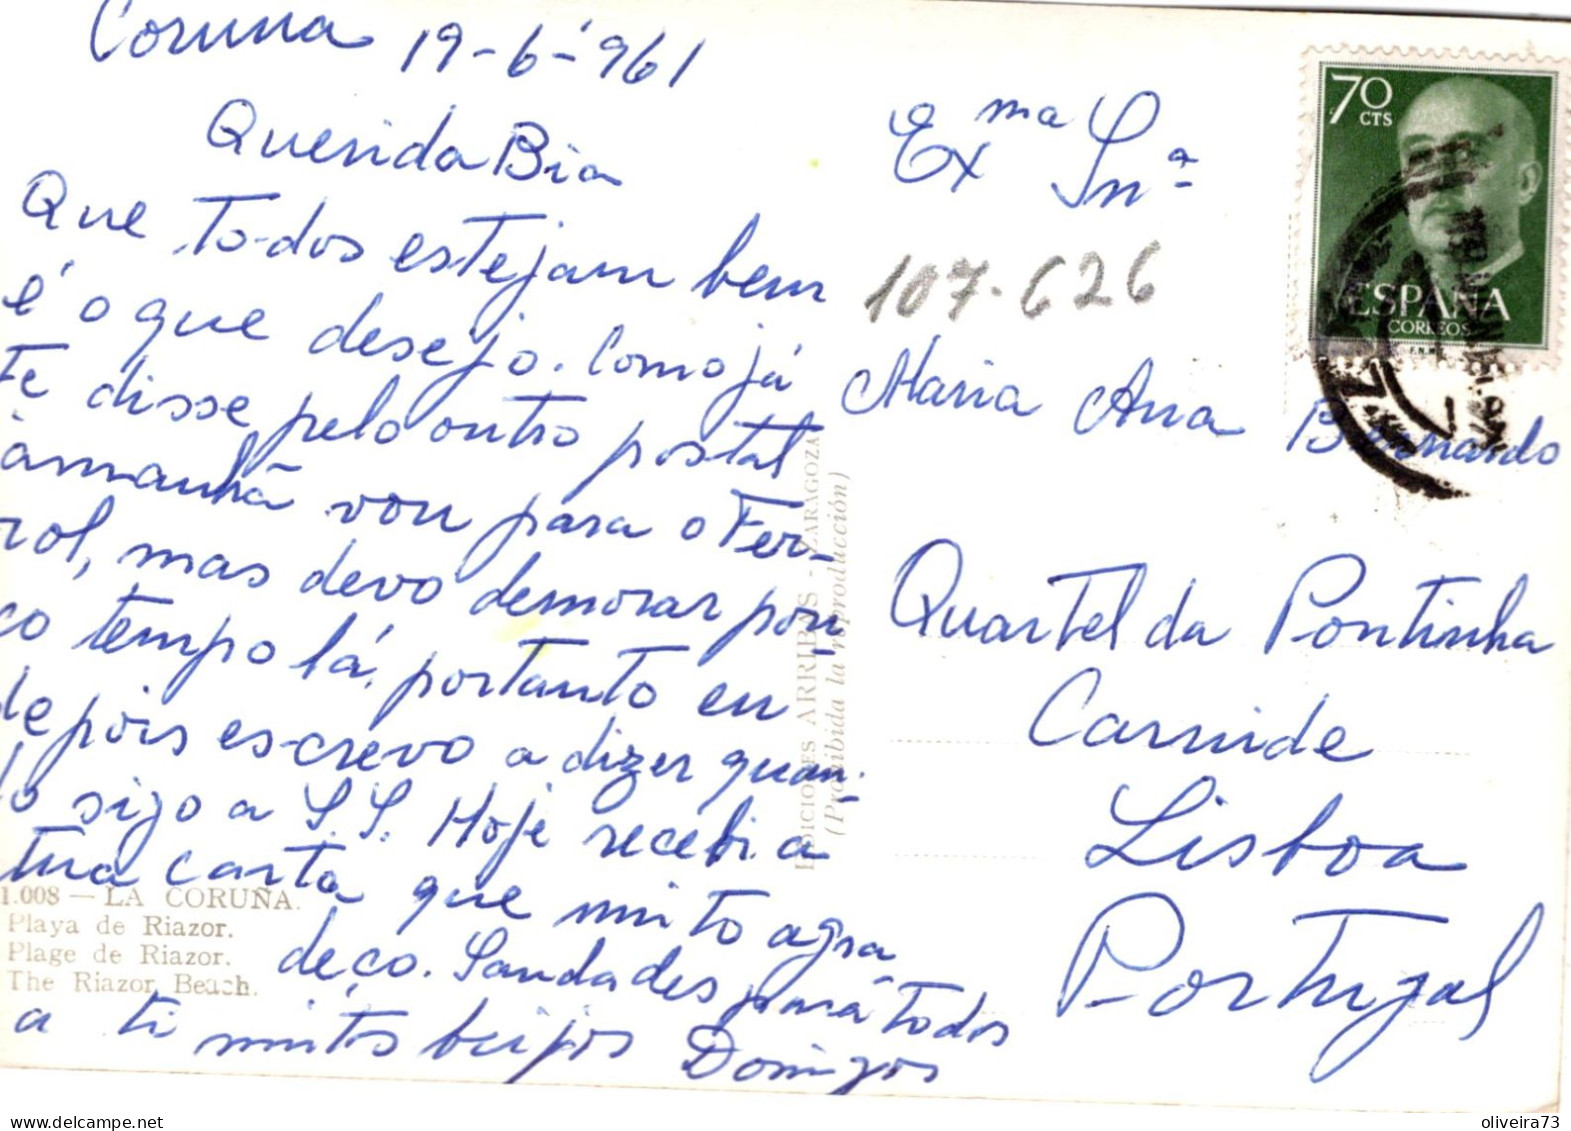 Coruna 19-6-'961
Querida Bia
Que todos estejam bem
é o que desejo. Como já
te disse pelo outro postal
àmanhã vou para o Fer-
rol, mas devo demorar pou-
co tempo lá, portanto eu
depois escrevo a dizer quan-
do sigo a S S. Hoje recebi a
tua carta que muito agra
deço. Saudades para todos
a ti muitos beijos Domingos
1.008 — LA CORUÑA.
Playa de Riazor.
Plage de Riazor.
The Riazor Beach.
EDICIONES ARRIBAS - ZARAGOZA
(Prohibida la reproducción)
70
CTS
ESPAÑA
CORREOS
Exma Snra
107.626
Maria Ana Bernardo
Quartel da Pontinha
Carnide
Lisboa
Portugal
oliveira73